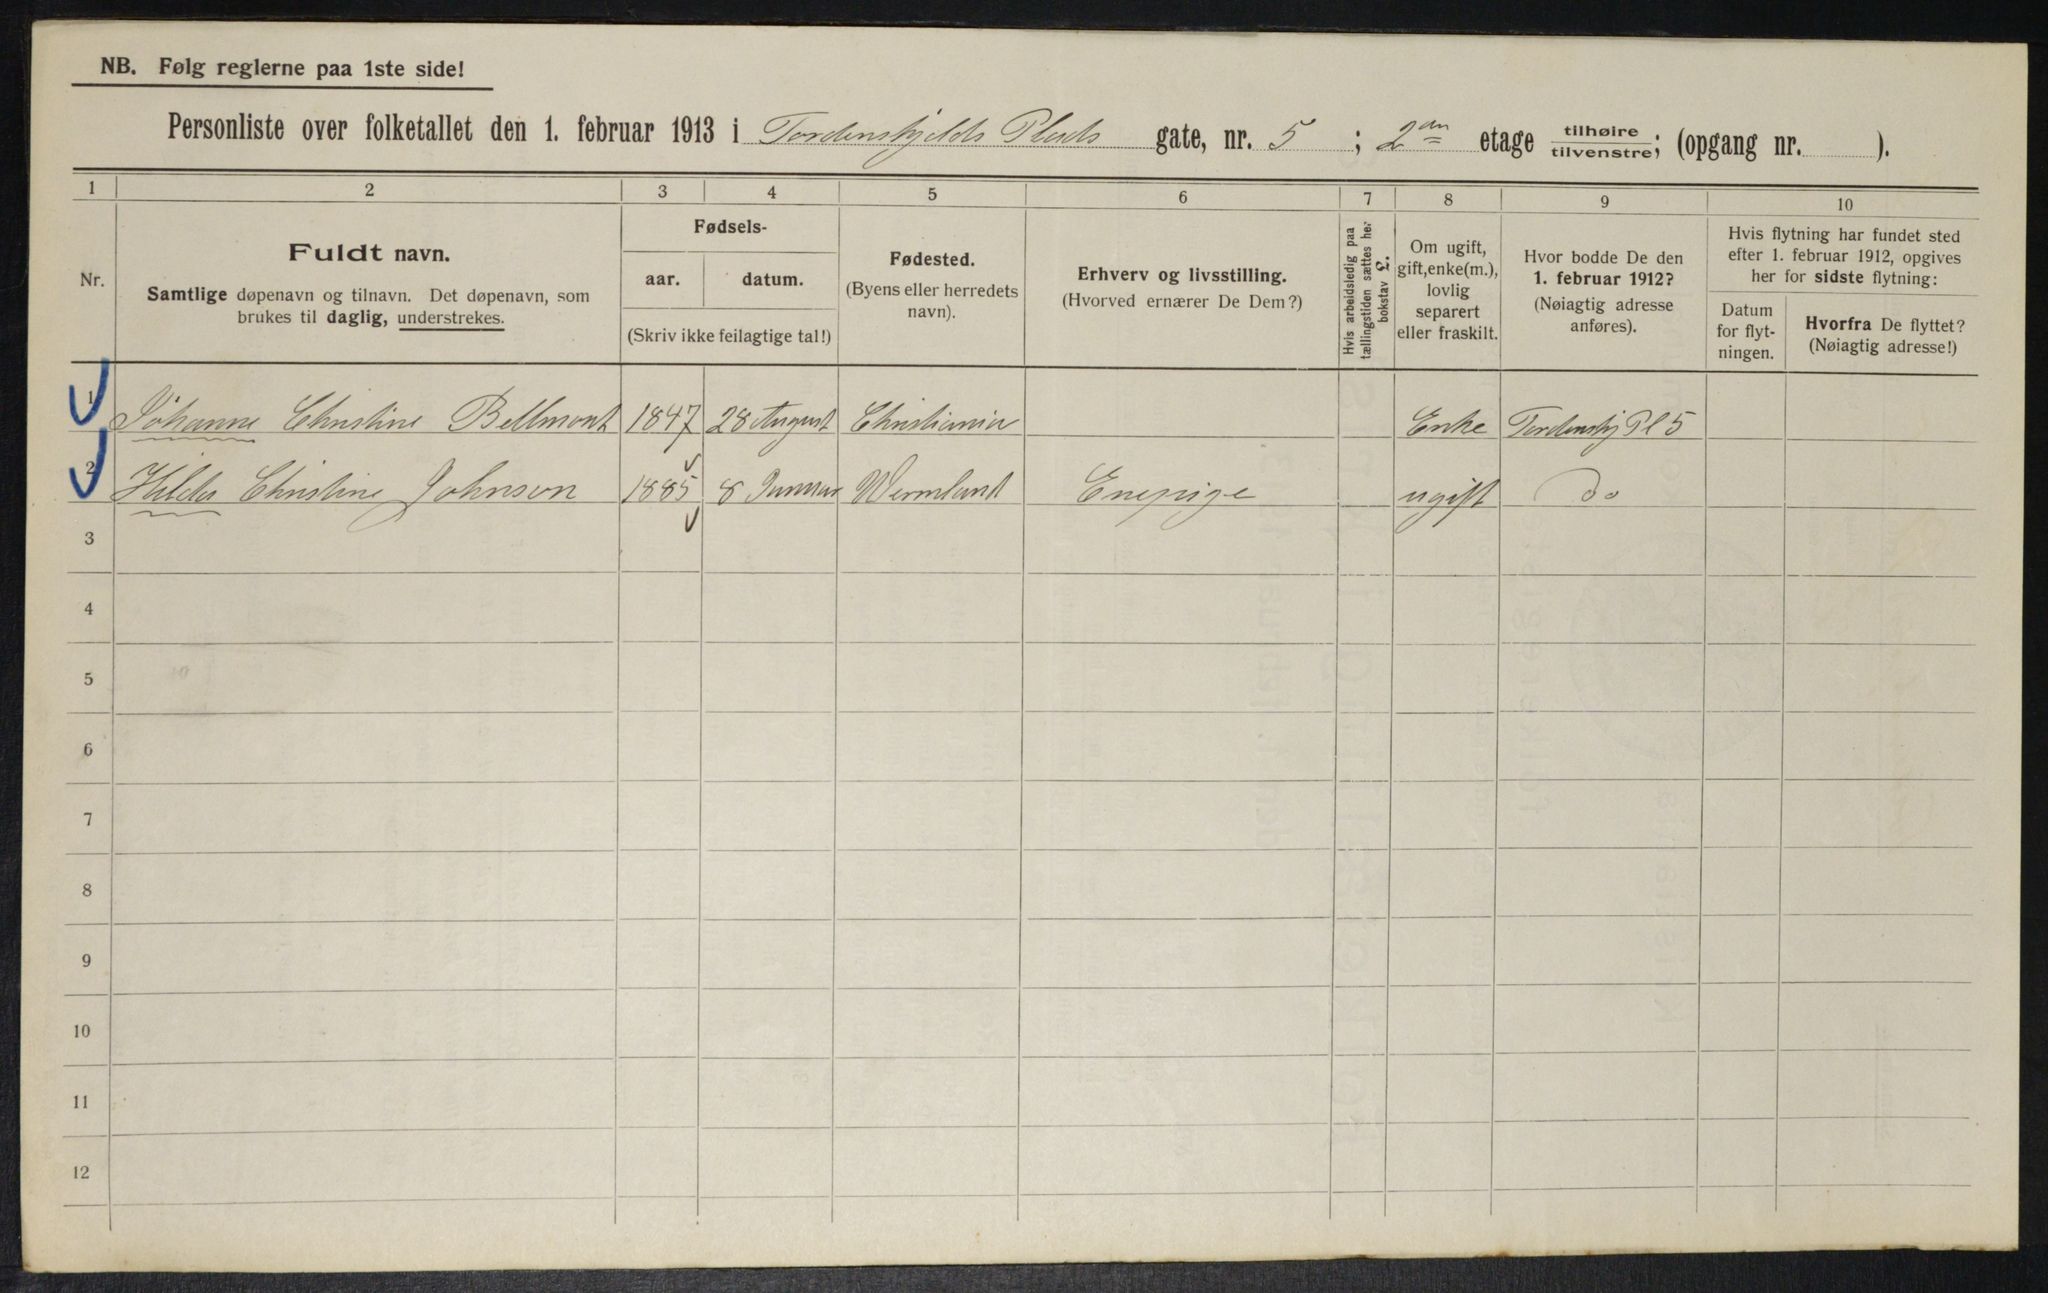 NB. Følg reglerne paa 1ste side!
Personliste over folketallet den 1. februar 1913 i Tordenskjolds Plads gate, nr. 5 ; 2den etage tilhøire tilvenstre; (opgang nr. ).
1 2 3 4 5 6 7 8 9 10
Nr.
Fuldt navn.
Samtlige døpenavn og tilnavn. Det døpenavn, som
brukes til daglig, understrekes.
Fødsels-
aar. datum.
(Skriv ikke feilagtige tal!)
Fødested.
(Byens eller herredets
navn).
Erhverv og livsstilling.
(Hvorved ernærer De Dem?)
Hvis arbeidsledig paa
tællingstiden sættes her
bokstav £.
Om ugift,
gift, enke(m.),
lovlig
separert
eller fraskilt.
Hvor bodde De den
1. februar 1912?
(Nøiagtig adresse
anføres).
Hvis flytning har fundet sted
efter 1. februar 1912, opgives
her for sidste flytning:
Datum
for flyt-
ningen.
Hvorfra De flyttet?
(Nøiagtig adresse!)
1 Johanne Christine Bellmont 1847 28 August Christiania Enke Tordenskj Pl 5
2 Hilda Christine Johnson 1885 8 Januar Wermland Enepige ugift Do
3
4
5
6
7
8
9
10
11
12